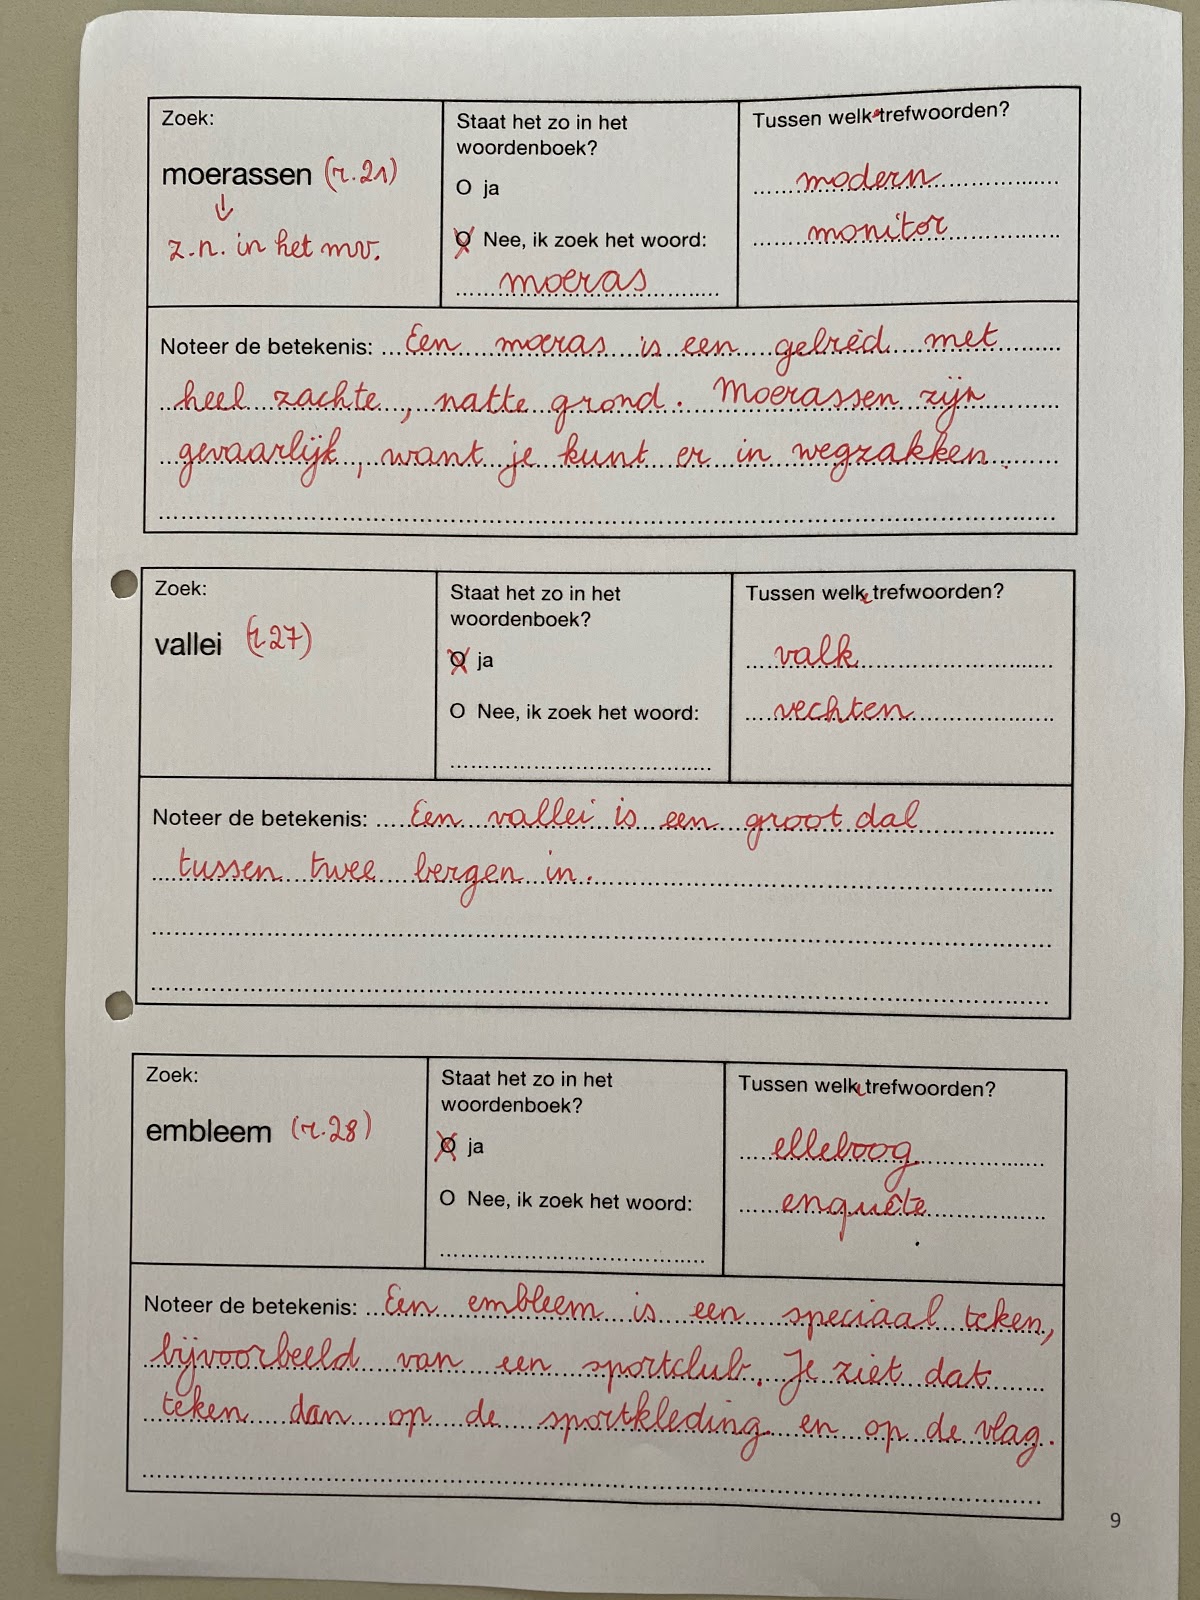 Zoek:
moerassen (r.21)
↓
z.n. in het mv.
Staat het zo in het
woordenboek?
O ja
O Nee, ik zoek het woord:
moeras
Tussen welke trefwoorden?
modern
monitor
Noteer de betekenis: Een moeras is een gebied met
heel zachte, natte grond. Moerassen zijn
gevaarlijk, want je kunt er in wegzakken.
Zoek:
vallei (r.27)
Staat het zo in het
woordenboek?
O ja
O Nee, ik zoek het woord:
Tussen welke trefwoorden?
valk
vechten
Noteer de betekenis: Een vallei is een groot dal
tussen twee bergen in.
Zoek:
embleem (r.28)
Staat het zo in het
woordenboek?
O ja
O Nee, ik zoek het woord:
Tussen welke trefwoorden?
elleboog
enquête
Noteer de betekenis: Een embleem is een speciaal teken,
bijvoorbeeld van een sportclub. Je ziet dat
teken dan op de sportkleding en op de vlag.
9